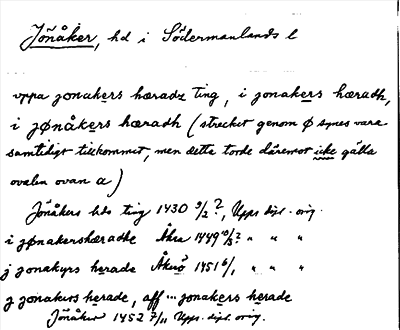 Jönåker, hd i Södermanlands l
uppa jonakers hæradz ting, i jonakers hæradh,
i jønåkers hæradh (strecket genom ø synes vara
samtidigt tillkommet, men detta torde däremot icke gälla
ovalen ovan a)
Jönåkers hds ting 1430 9/2 ?, Upps dipl. orig.
i jønakershæradhe Åkra 1449 10/5? " " "
j jonakyrs herade Åkerö 1451 6/1 " " "
j jonakirs herade, aff ... jonakers herade
Jönåker 1452 7/11 Upps. dipl. orig.